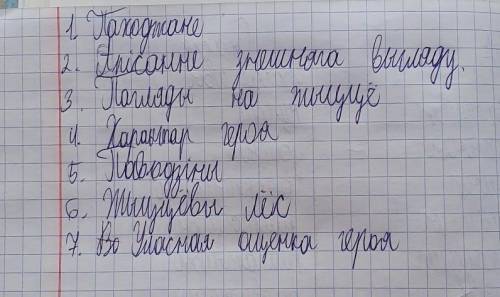 1. Паходжане
2. Апісанне знешняга выгляду.
3. Погляды на жыццё
4. Характар героя
5. Паводзіны
6. Жыццёвы лёс
7. Во Уласная ацэнка героя